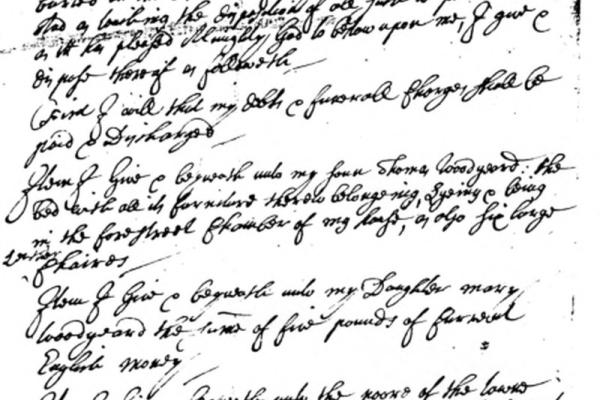 and as touching the disposition of all such
as it has pleased Almighty God to bestow upon me, I give &
dispose thereof as followeth
First I will that my debts & funerall Charges shall be
paid & Discharged
Item I Give & bequeath unto my sonn Thomas Woodyeard the
bed with all its furniture thereto belonging, Lyeing & being
in the forestreet Chamber of my house, as also six large
Leather
Chaires
Item I Give & bequeath unto my Daughter mary
Woodyeard the sume of five pounds of Currant
English money
Item I Give & bequeath unto the poore of the towne